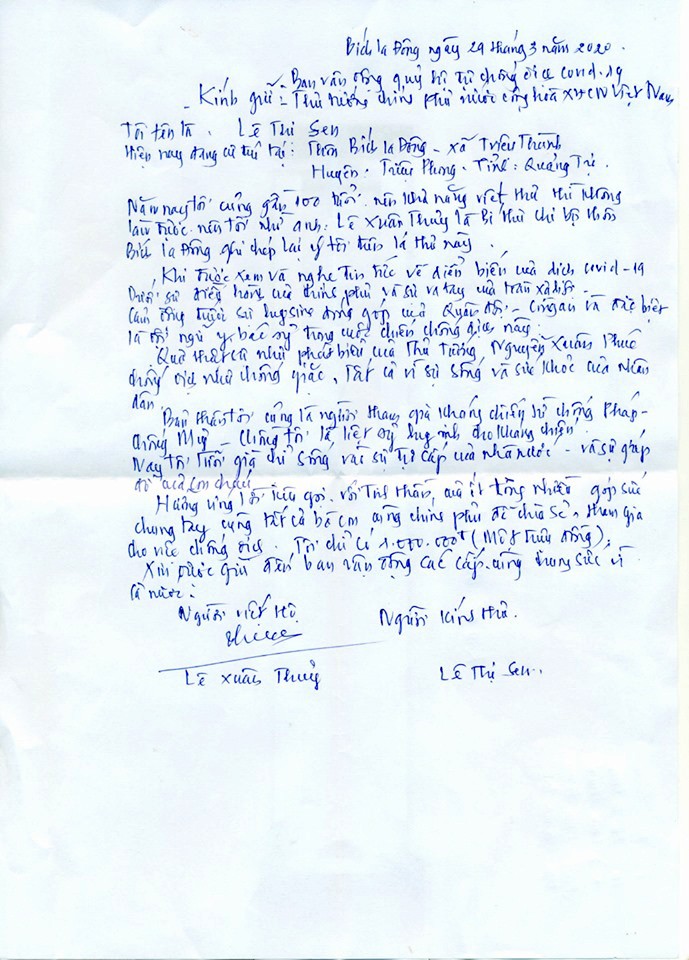 Bích la Đông ngày 29 tháng 3 năm 2020.
Ban vận động quỹ hỗ trợ chống dịch covid-19
- Kính gửi: - Thủ tướng chính phủ nước cộng hòa XHCN Việt Nam
Tôi tên là. Lê Thị Sen
Hiện nay đang cư trú tại: Thôn Bích la Đông - xã Triệu Thành
Huyện. Triệu Phong - Tỉnh: Quảng Trị.
Năm nay tôi cũng gần 100 tuổi. nên khả năng viết thư thì không
làm được. nên tôi nhờ anh: Lê Xuân Thủy là Bí thư chi bộ thôn
Bích la Đông ghi chép lại ý tôi lá thư này.
Khi được xem và nghe tin tức về diễn biến của dịch covid-19
Dưới sự điều hành của chính phủ và sự ra tay của toàn xã hội -
Cảm động trước sự hy sinh đóng góp của Quân đội - Công an và đặc biệt
là đội ngũ y bác sỹ trong cuộc chiến chống dịch này.
Quả thật là như phát biểu của Thủ Tướng Nguyễn Xuân Phúc
chống dịch như chống giặc, Tất cả vì sự sống và sức khỏe của nhân
dân.
Bản thân tôi cũng là người tham gia kháng chiến từ chống Pháp -
chống Mỹ - Chồng tôi là liệt sỹ hy sinh cho kháng chiến.
Nay tôi già chỉ sống với sự trợ cấp của nhà nước - và sự giúp
đỡ của con cháu.
Hưởng ứng lời kêu gọi. với tinh thần, của ít lòng nhiều góp sức
chung tay cùng tất cả bà con cùng chính phủ để chia sẻ, tham gia
cho việc chống dịch. Tôi chỉ có 1.000.000đ (Một triệu đồng).
Xin được gửi đến ban vận động các cấp. cùng chung sức vì
cả nước.
Người viết hộ Người kính thư.
Lê Xuân Thủy Lê Thị Sen.